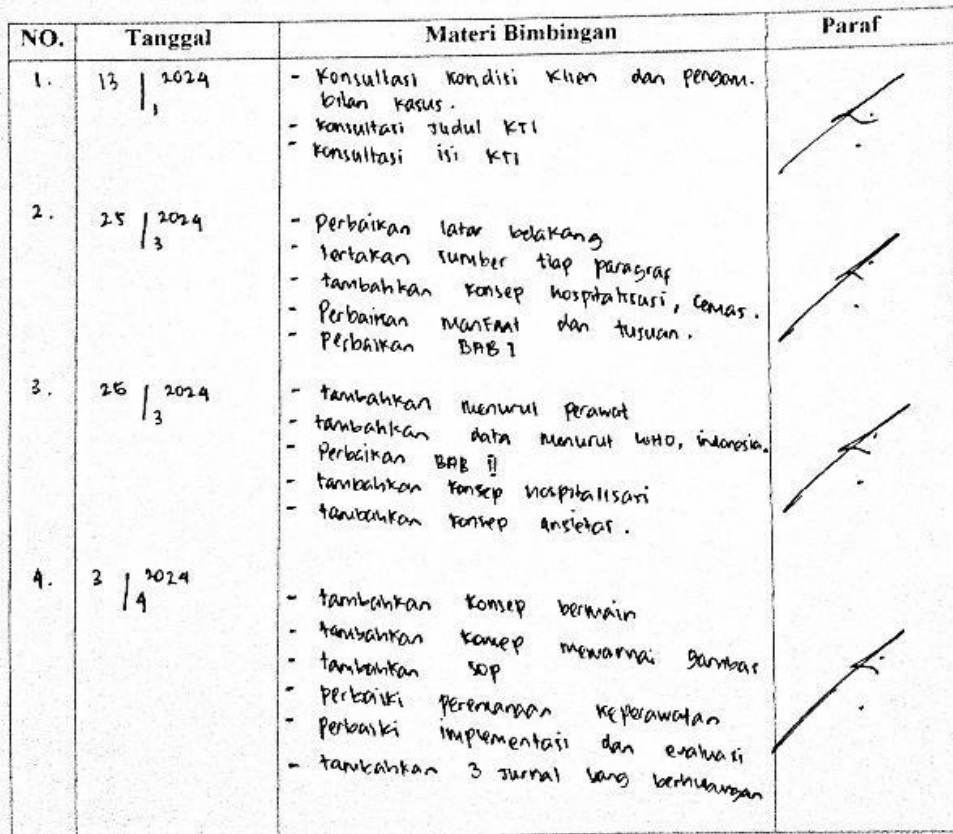 NO. Tanggal Materi Bimbingan Paraf
1. 13 | 1 2024 - Konsultasi kondisi klien dan pengam.
bilan kasus.
- konsultasi judul KTI
- konsultasi isi KTI
2. 25 | 3 2024 - perbaikan latar belakang
- sertakan sumber tiap paragraf
- tambahkan konsep hospitalisasi, cemas.
- Perbaikan manfaat dan tujuan.
- perbaikan BAB 1
3. 26 | 3 2024 - tambahkan menurut perawat
- tambahkan data menurut WHO, indonesia.
- Perbaikan BAB II
- tambahkan konsep hospitalisasi
- tambahkan konsep ansietas.
4. 3 | 4 2024 - tambahkan konsep bermain
- tambahkan konsep mewarnai gambar
- tambahkan SOP
- perbaiki perencanaan keperawatan
- Perbaiki implementasi dan evaluasi
- tambahkan 3 jurnal yang berhubungan